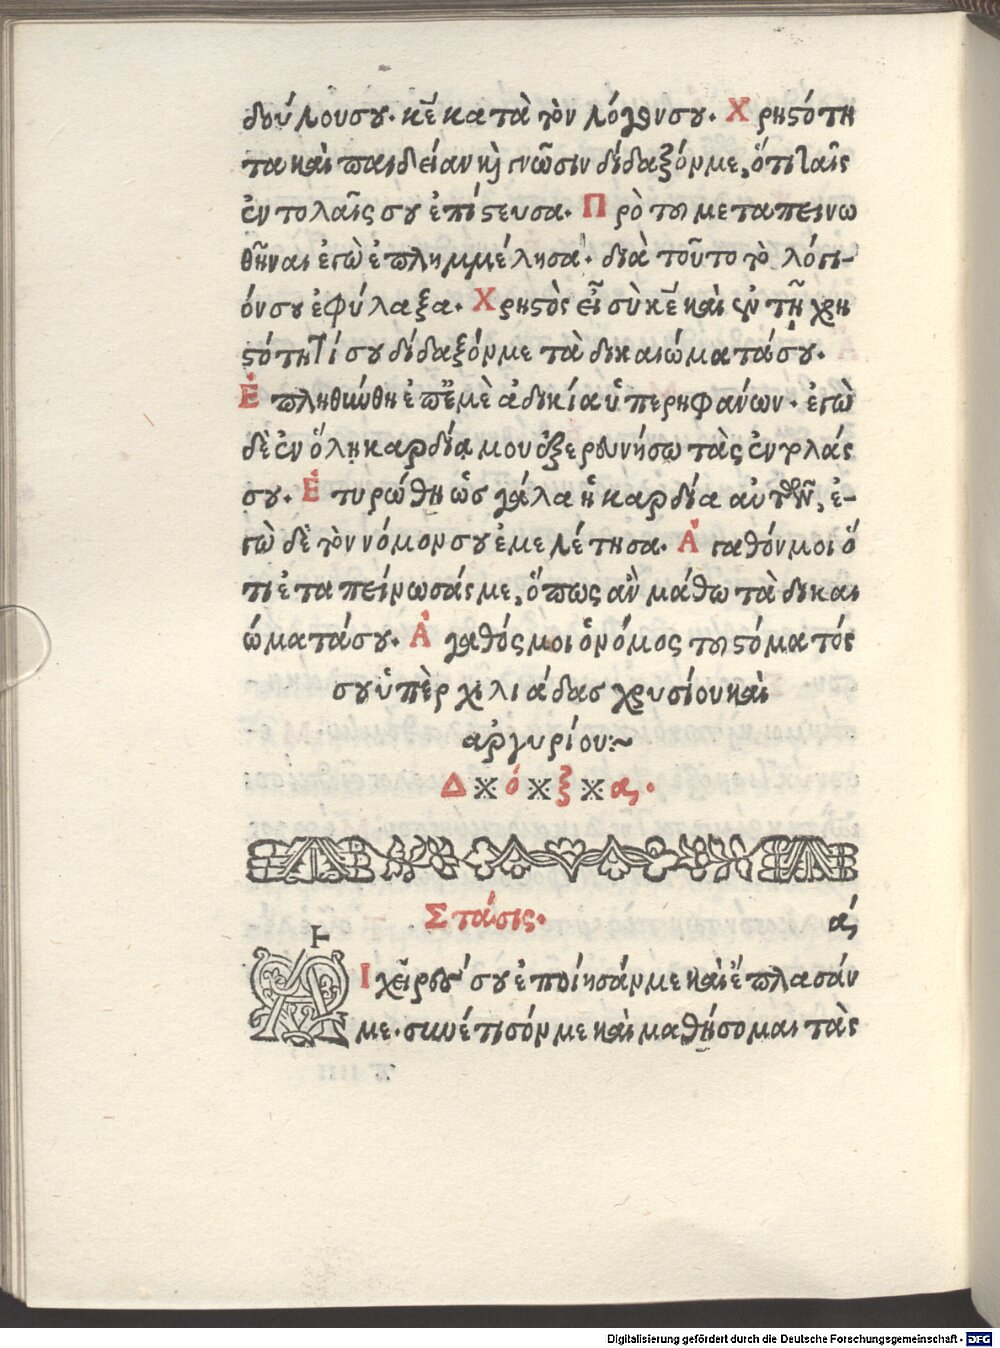 δούλου σου· κε̄ κατὰ τὸν λόγον σου· Χρηστότη
τα καὶ παιδείαν κὶ γνῶσιν δίδαξόν με, ὅτι ταῖς
ἐντολαῖς σου ἐπίστευσα· Πρὸ του με ταπεινω
θῆναι ἐγὼ ἐπλημμέλησα· διὰ τοῦτο τὸ λόγι-
όν σου ἐφύλαξα· Χρηστὸς εἶ σὺ κε̄ καὶ ἐν τῇ χρη
στότητί σου δίδαξόν με τὰ δικαιώματά σου·
Ἐπληθύνθη ἐπ ἐμὲ ἀδικία ὑπερηφάνων· ἐγὼ
δὲ ἐν ὅλῃ καρδίᾳ μου ἐξερευνήσω τὰς ἐντολάς
σου· Ἐτυρώθη ὡς γάλα ἡ καρδία αὐτῶν, ἐ-
γὼ δὲ τὸν νόμον σου ἐμελέτησα· Ἀγαθόν μοι ὅ
τι ἐταπείνωσάς με, ὅπως ἂν μάθω τὰ δικαι
ώματά σου· Ἀγαθός μοι ὁ νόμος του στόματός
σου ὑπὲρ χιλιάδας χρυσίου καὶ
ἀργυρίου:~
Δ ※ ό ※ ξ ※ α·
Στάσις· ά
ΑΙ χεῖρές σου ἐποίησάν με καὶ ἔπλασάν
με· συνέτισόν με καὶ μαθήσομαι τὰς
Digitalisierung gefördert durch die Deutsche Forschungsgemeinschaft - DFG